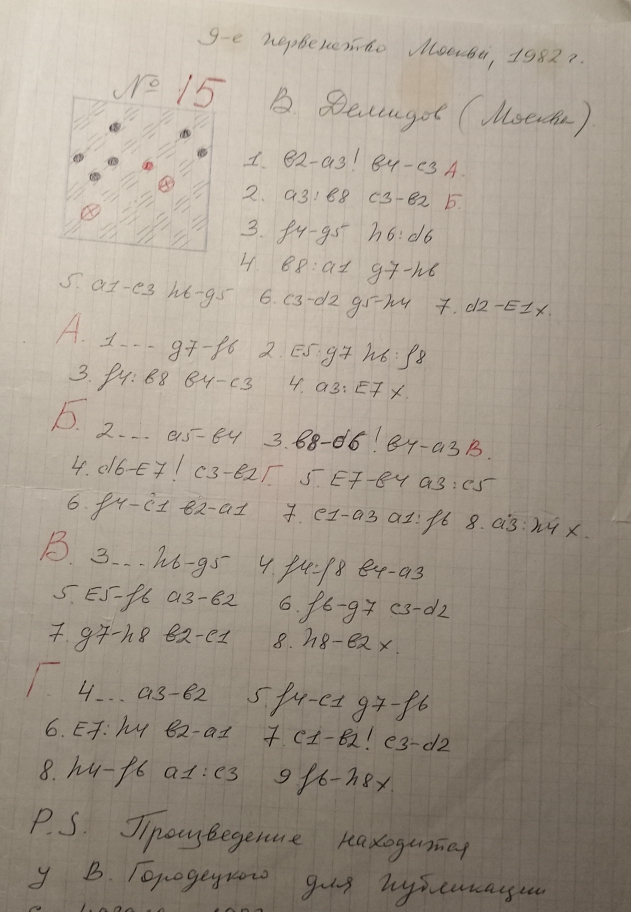 9-е первенство Москвы, 1982 г.
№ 15
В. Демидов (Москва).
1. в2-а3! в4-с3 А.
2. а3:в8 с3-в2 Б.
3. f4-g5 h6:d6
4. в8:а1 g7-h6
5. а1-с3 h6-g5 6. с3-d2 g5-h4 7. d2-Е1х.
А. 1... g7-f6 2. Е5:g7 h6:f8
3. f4:в8 в4-с3 4. а3:Е7 х.
Б. 2... а5-в4 3. в8-d6! в4-а3 В.
4. d6-Е7! с3-в2 Г. 5. Е7-в4 а3:с5
6. f4-с1 в2-а1 7. с1-а3 а1:f6 8. а3:h4 х.
В. 3... h6-g5 4. f4:f8 в4-а3
5. Е5-f6 а3-в2 6. f6-g7 с3-d2
7. g7-h8 в2-с1 8. h8-в2 х.
Г. 4... а3-в2 5. f4-с1 g7-f6
6. Е7:h4 в2-а1 7. с1-в2! с3-d2
8. h4-f6 а1:с3 9 f6-h8х.
P.S. Произведение находится
у В. Городецкого для публикации
с начала